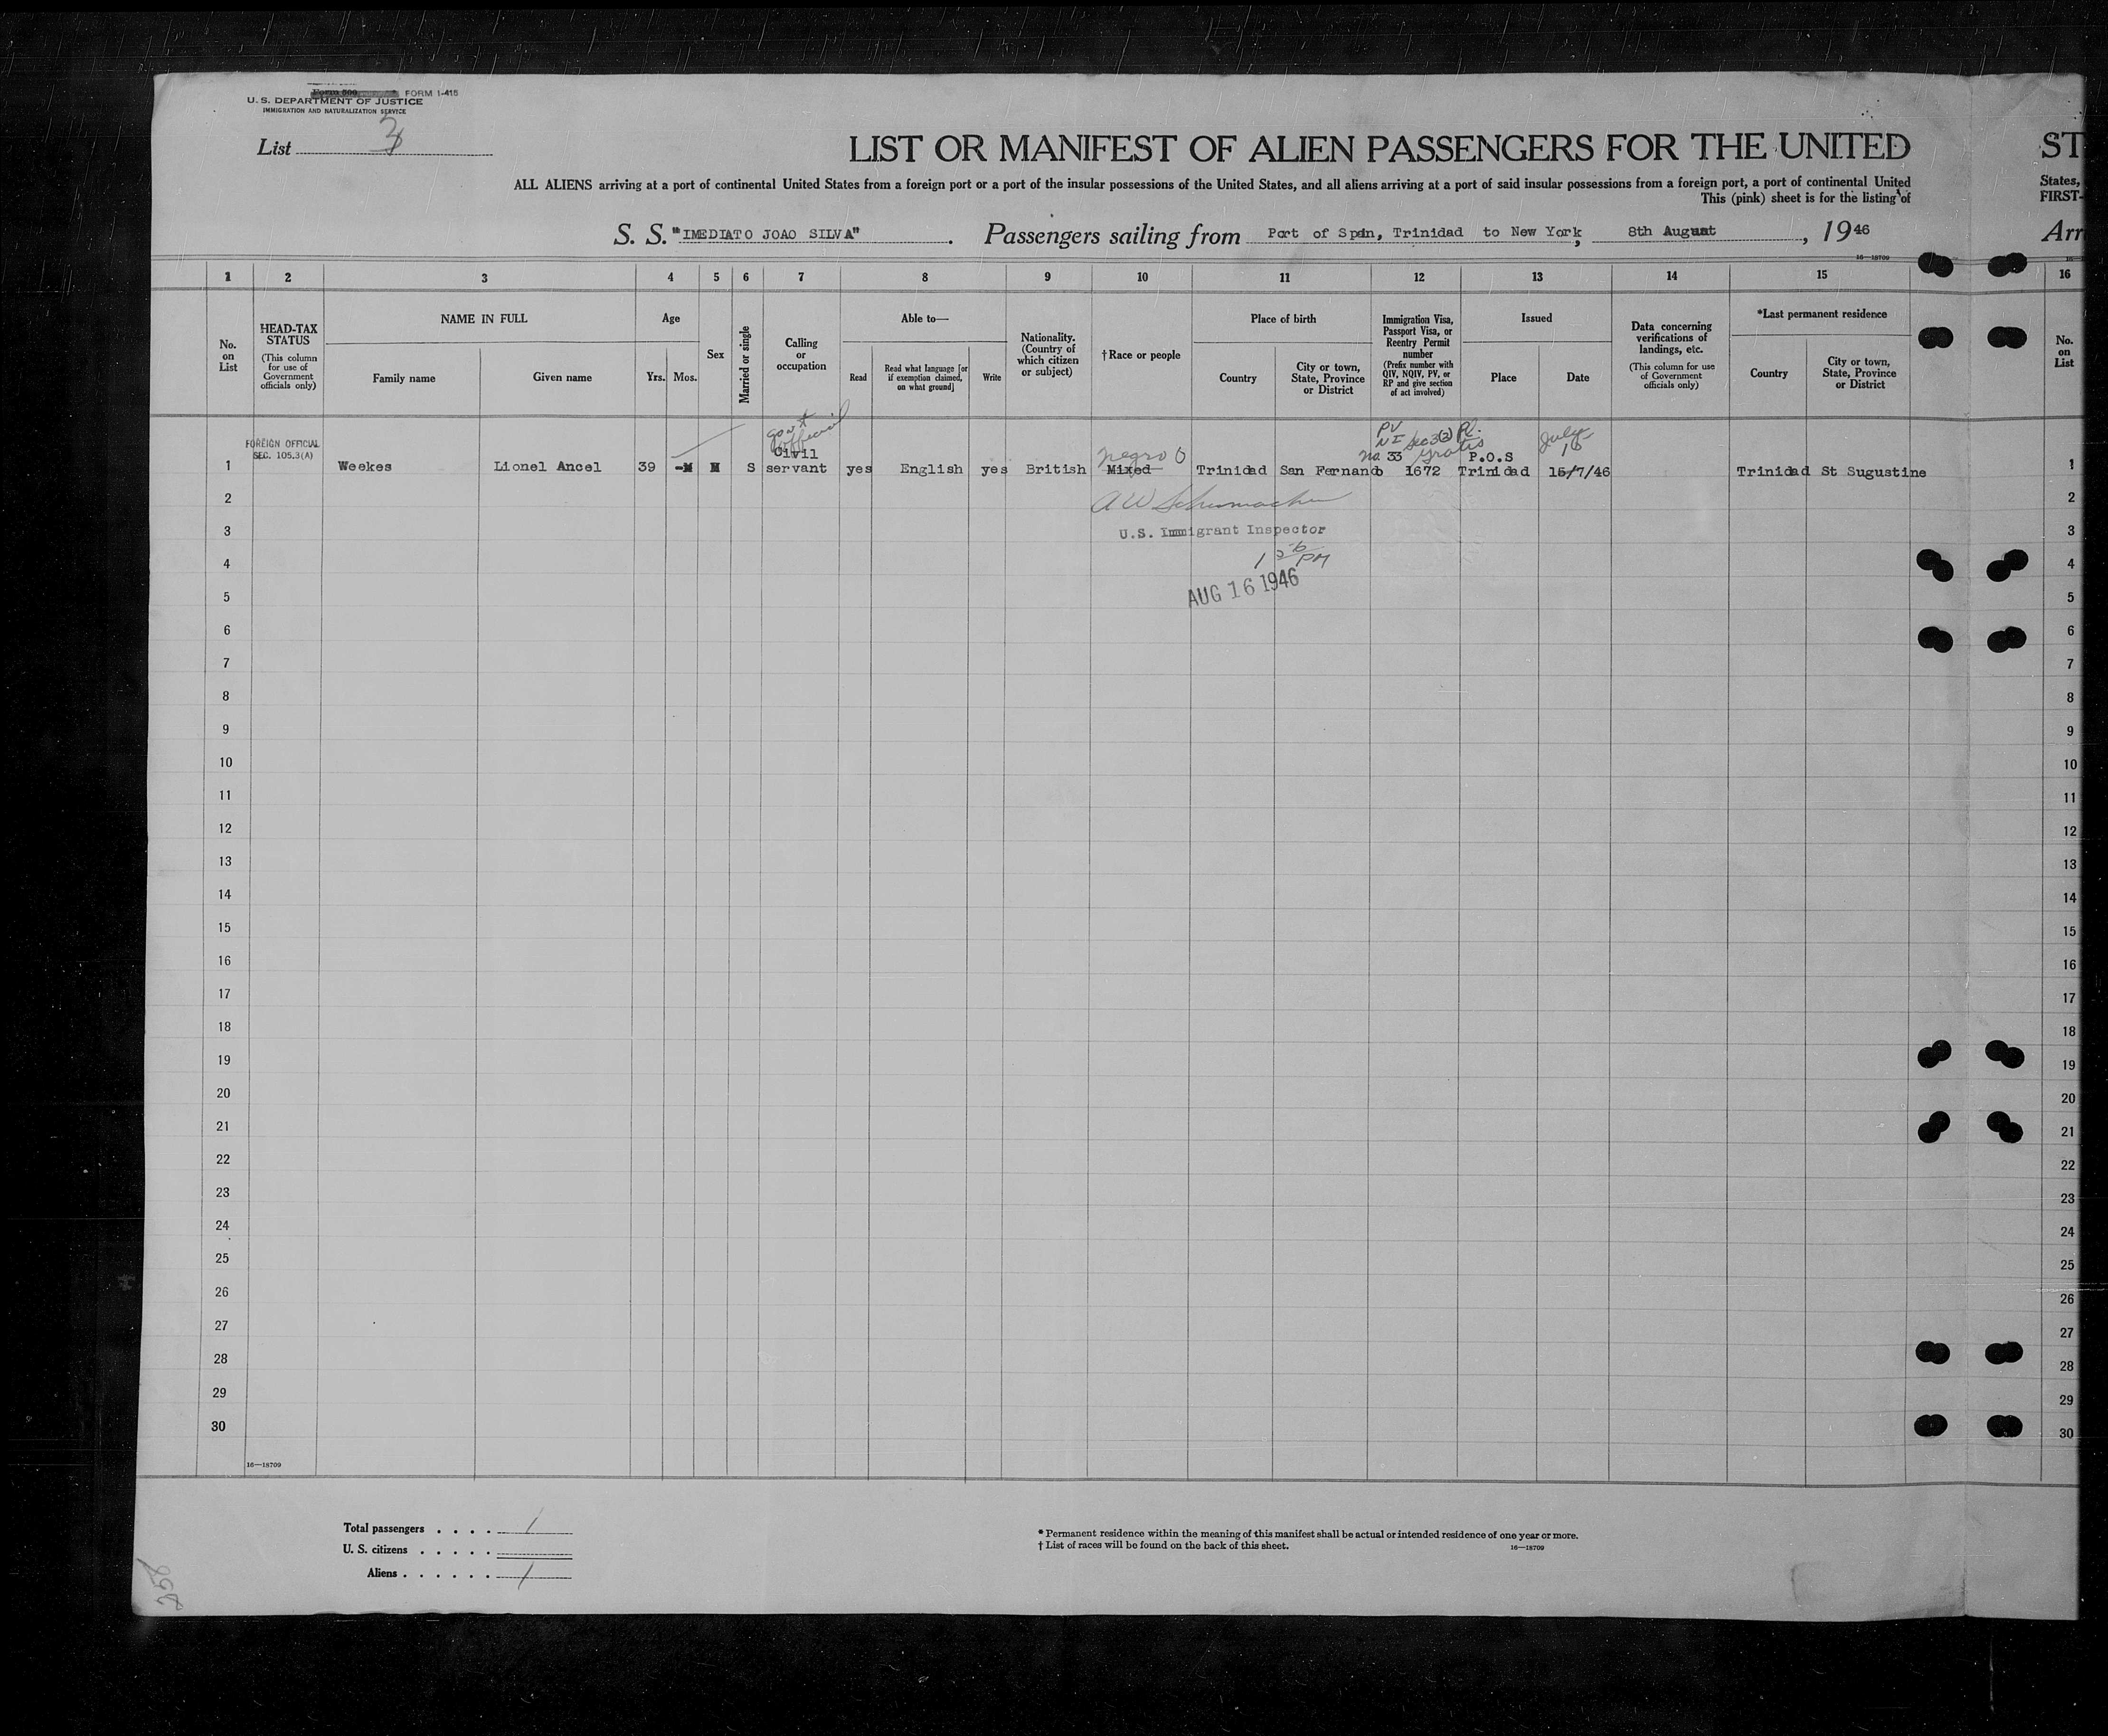 FORM I-415
U. S. DEPARTMENT OF JUSTICE
IMMIGRATION AND NATURALIZATION SERVICE
List 3
LIST OR MANIFEST OF ALIEN PASSENGERS FOR THE UNITED ST
ALL ALIENS arriving at a port of continental United States from a foreign port or a port of the insular possessions of the United States, and all aliens arriving at a port of said insular possessions from a foreign port, a port of continental United States,
This (pink) sheet is for the listing of FIRST-
S. S. "IMEDIATO JOAO SILVA". Passengers sailing from Port of Spain, Trinidad to New York, 8th August, 1946 Arr
16—18709
1 2 3 4 5 6 7 8 9 10 11 12 13 14 15 16
No. on List
HEAD-TAX STATUS
(This column for use of Government officials only)
NAME IN FULL
Family name Given name
Age
Yrs. Mos.
Sex
Married or single
Calling or occupation
Able to—
Read
Read what language [or if exemption claimed, on what ground]
Write
Nationality. (Country of which citizen or subject)
†Race or people
Place of birth
Country
City or town, State, Province or District
Immigration Visa, Passport Visa, or Reentry Permit number
(Prefix number with QIV, NQIV, PV, or RP and give section of act involved)
Issued
Place Date
Data concerning verifications of landings, etc.
(This column for use of Government officials only)
*Last permanent residence
Country
City or town, State, Province or District
No. on List
FOREIGN OFFICIAL
SEC. 105.3(A)
Gov't official
PV
Sec 3(2)
gratis
July 16
Civil
Negro
No. 33
P.O.S
1 Weekes Lionel Ancel 39 M M S servant yes English yes British Mixed Trinidad San Fernando 1672 Trinidad 15/7/46 Trinidad St Sugustine 1
2 A W Schumacher 2
3 U.S. Immigrant Inspector 3
4 PM 4
5 AUG 16 1946 5
6 6
7 7
8 8
9 9
10 10
11 11
12 12
13 13
14 14
15 15
16 16
17 17
18 18
19 19
20 20
21 21
22 22
23 23
24 24
25 25
26 26
27 27
28 28
29 29
30 30
16—18709
Total passengers . . . . 1
U. S. citizens . . . . .
Aliens . . . . . . 1
* Permanent residence within the meaning of this manifest shall be actual or intended residence of one year or more.
† List of races will be found on the back of this sheet. 16—18709